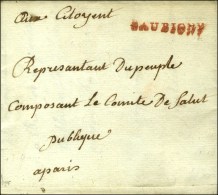 aux Citoyent
BAUBIGNY
Representant Du peuple
Composant Le Comite De Salut
publique
aparis